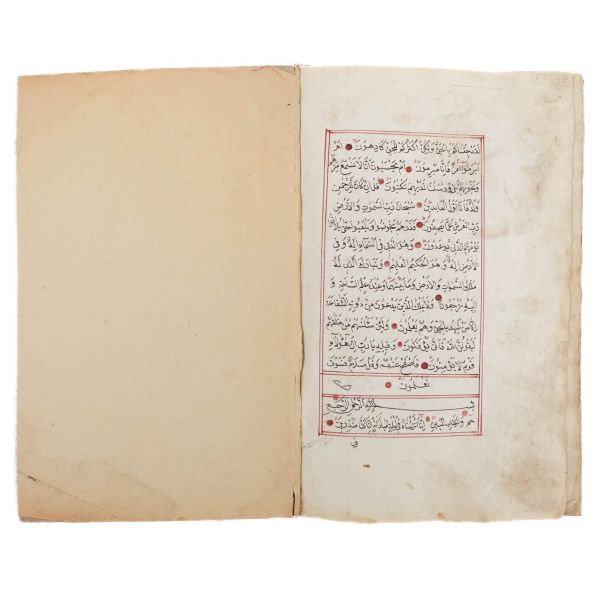 لقد جئناكم بالحق ولكن اكثركم للحق كارهون ام
ابرموا امرا فانا مبرمون ام يحسبون انا لا نسمع سرهم
ونجويهم بلى ورسلنا لديهم يكتبون قل ان كان للرحمن
ولد فانا اول العابدين سبحان رب السموات والارض
رب العرش عما يصفون فذرهم يخوضوا ويلعبوا حتى يلاقوا
يومهم الذى يوعدون وهو الذى فى السماء اله وفى
الارض اله وهو الحكيم العليم وتبارك الذى له
ملك السموات والارض وما بينهما وعنده علم الساعة و
اليه ترجعون ولا يملك الذين يدعون من دونه الشفاعة
الا من شهد بالحق وهم يعلمون ولئن سئلتهم من خلقهم
ليقولن الله فانى يؤفكون وقيله يا رب ان هؤلاء
قوم لا يؤمنون فاصفح عنهم وقل سلام فسوف
تعلمون
بسم الله الرحمن الرحيم
حم والكتاب المبين انا انزلناه فى ليلة مباركة انا كنا منذرين
فيها